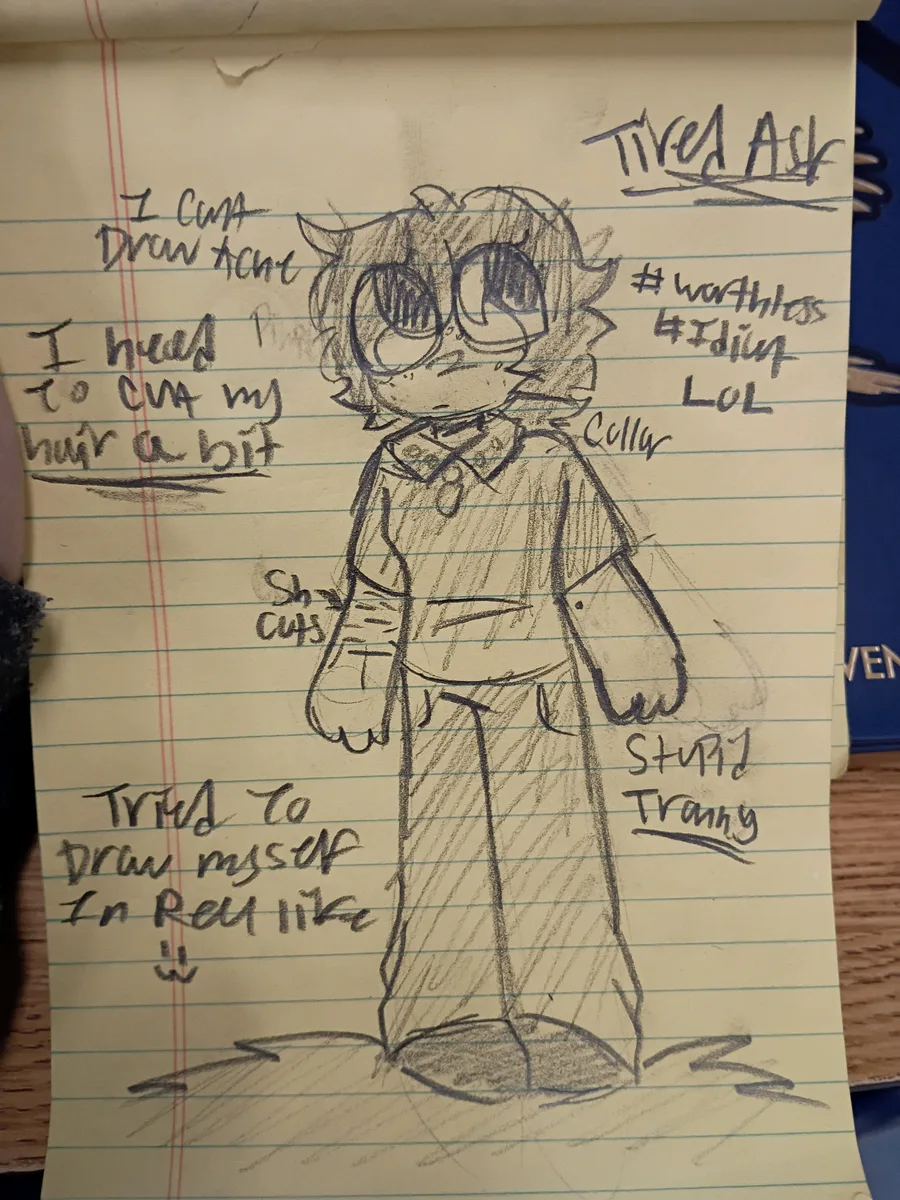 Tired Ask
I Cant
Draw Acne
I need
To Cut my
hair a bit
#worthless
#Idiot
LOL
Collar
Sh
Cuts
Stupid
Tranny
Tried To
Draw myself
In Real like
VEN